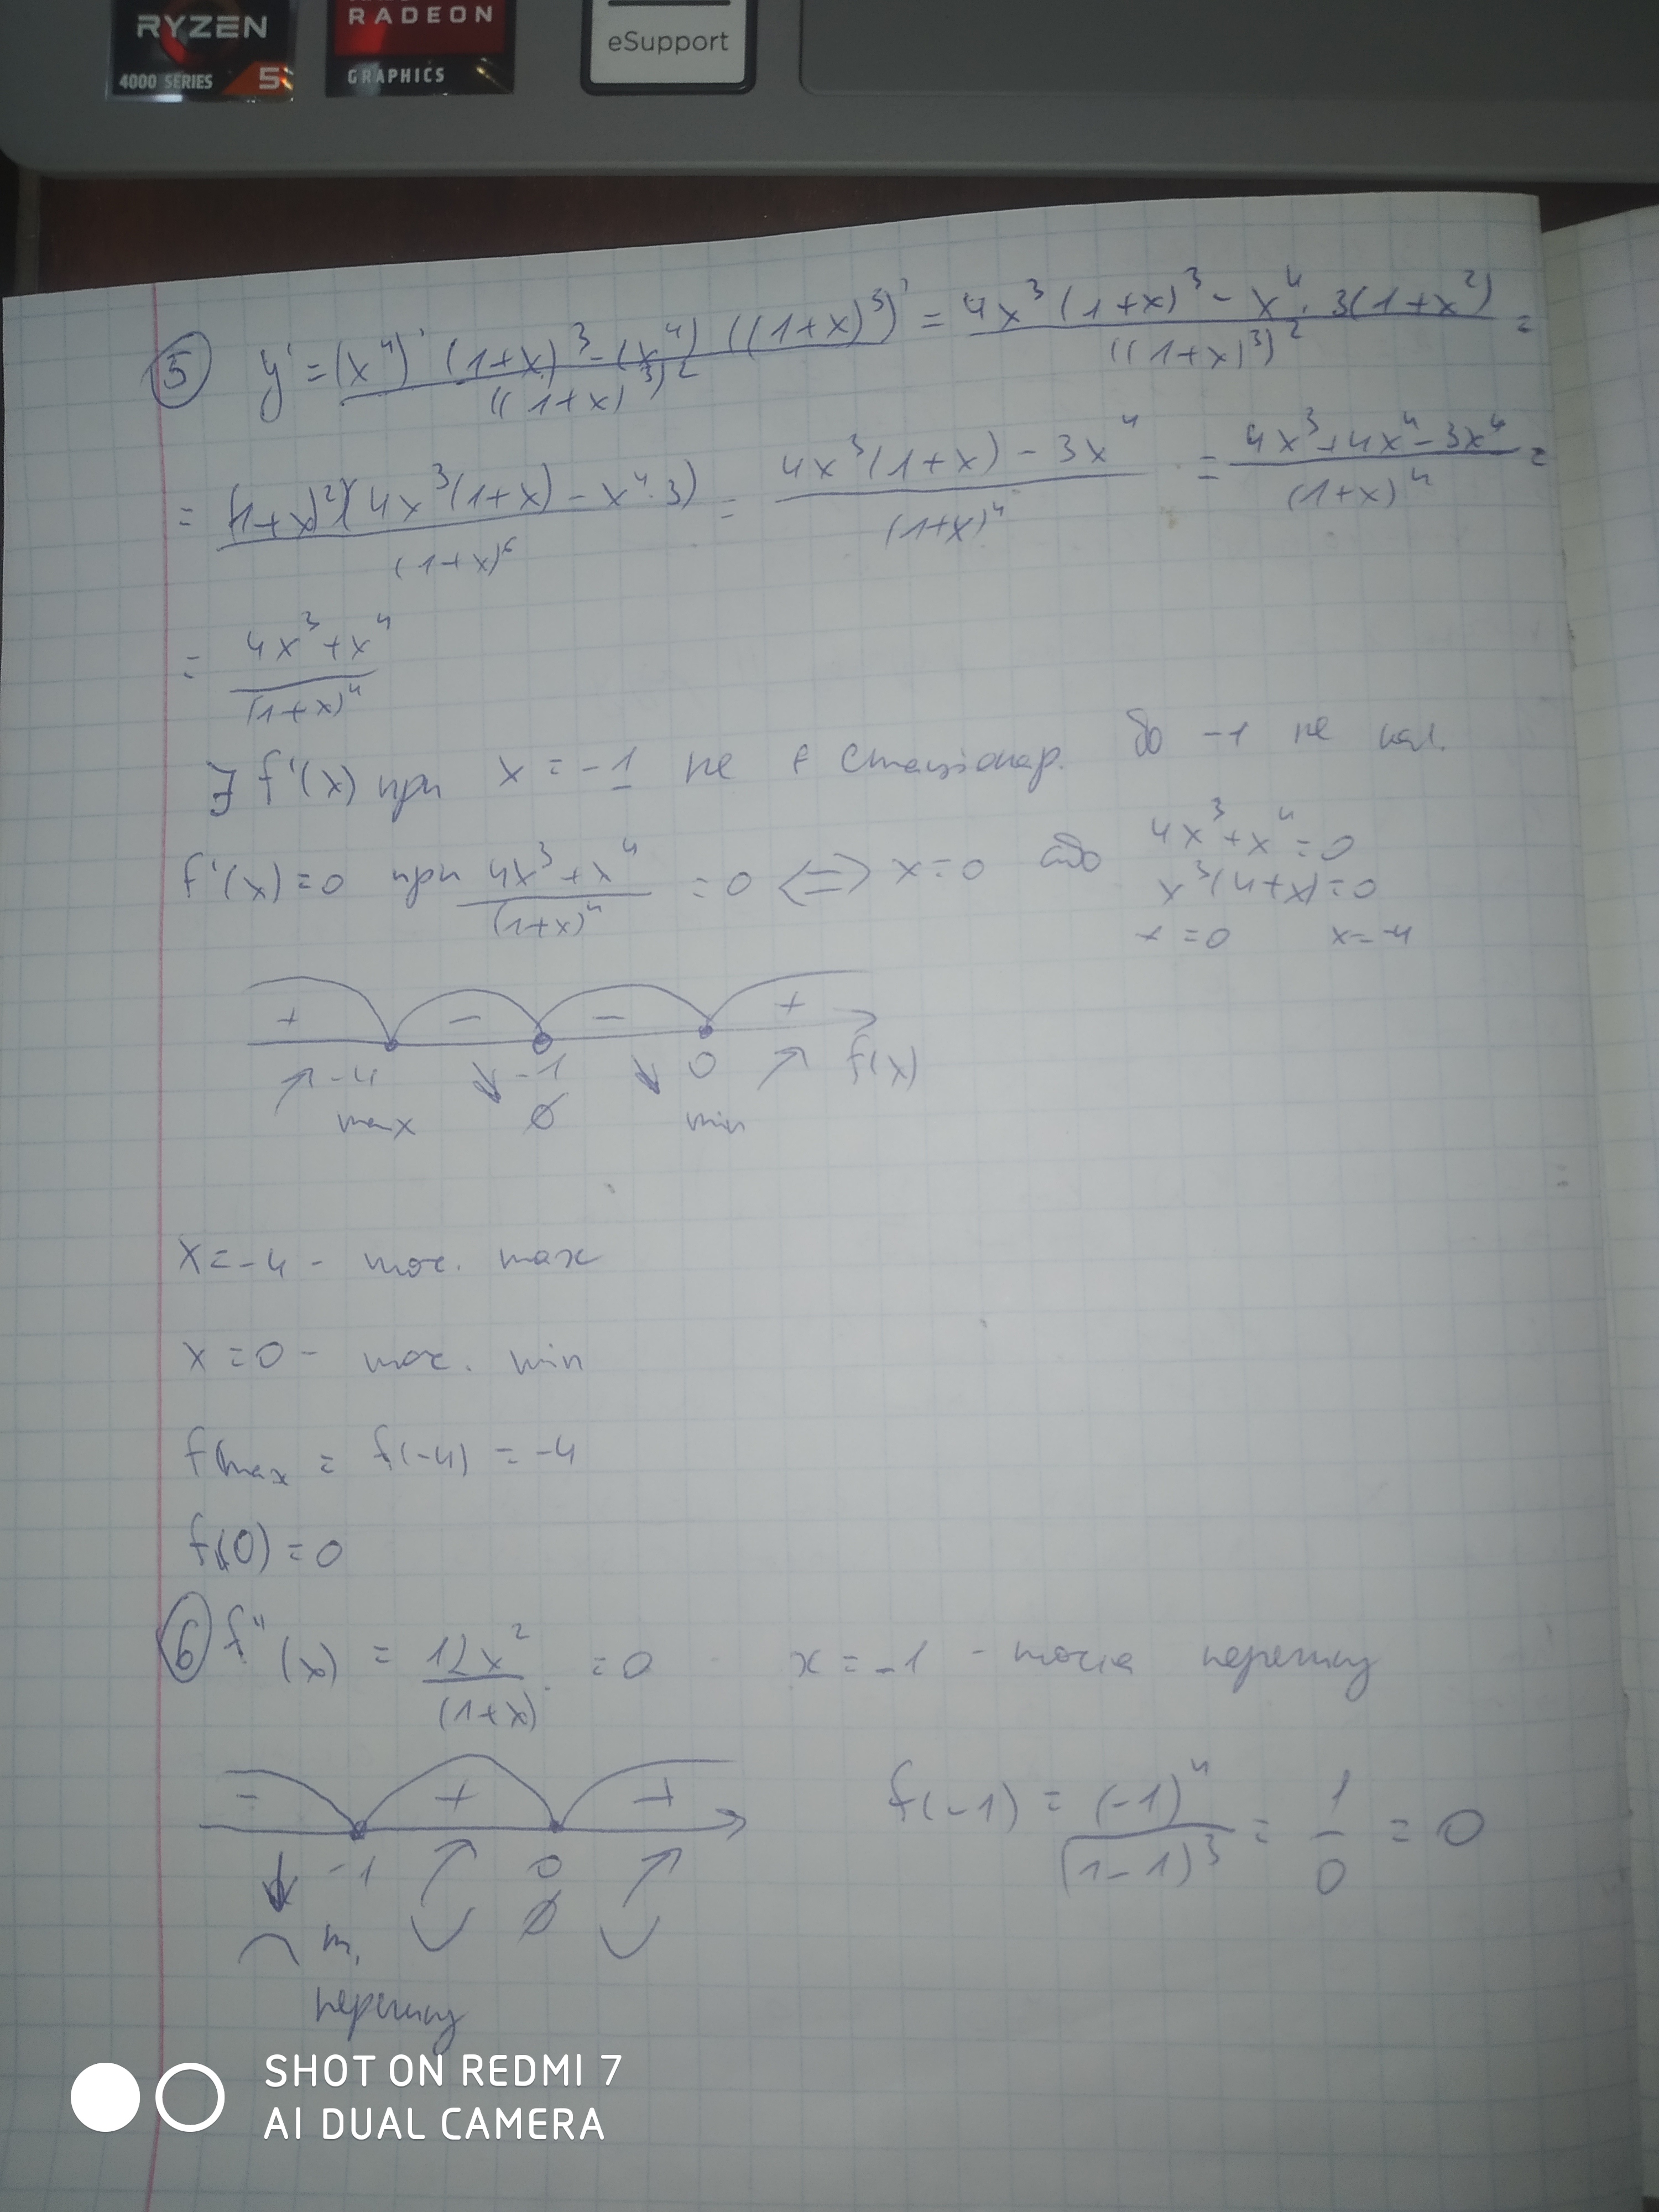 RYZEN
4000 SERIES 5
RADEON
GRAPHICS
eSupport
⑤ y' = (x⁴)' (1+x)³ - (x⁴) ((1+x)³)' / ((1+x)³)² = 4x³(1+x)³ - x⁴ · 3(1+x²) / ((1+x)³)² =
= (1+x)²(4x³(1+x) - x⁴·3) / (1+x)⁶ = 4x³(1+x) - 3x⁴ / (1+x)⁴ = 4x³+4x⁴-3x⁴ / (1+x)⁴ =
= 4x³+x⁴ / (1+x)⁴
f'(x) при x = -1 не є стаціонар. бо -1 не
f'(x) = 0 при 4x³+x⁴ / (1+x)⁴ = 0 <=> x = 0 або
4x³+x⁴ = 0
x³(4+x) = 0
x = 0 x = -4
+ - - +
-4 -1 0 f(x)
max ∅ min
x = -4 - точ. max
x = 0 - точ. min
f max = f(-4) = -4
f(0) = 0
⑥ f''(x) = 12x² / (1+x) = 0 x = -1 - точка перегину
- + +
-1 0
т. ∅
перегину
f(-1) = (-1)⁴ / (1-1)³ = 1 / 0 = 0
SHOT ON REDMI 7
AI DUAL CAMERA